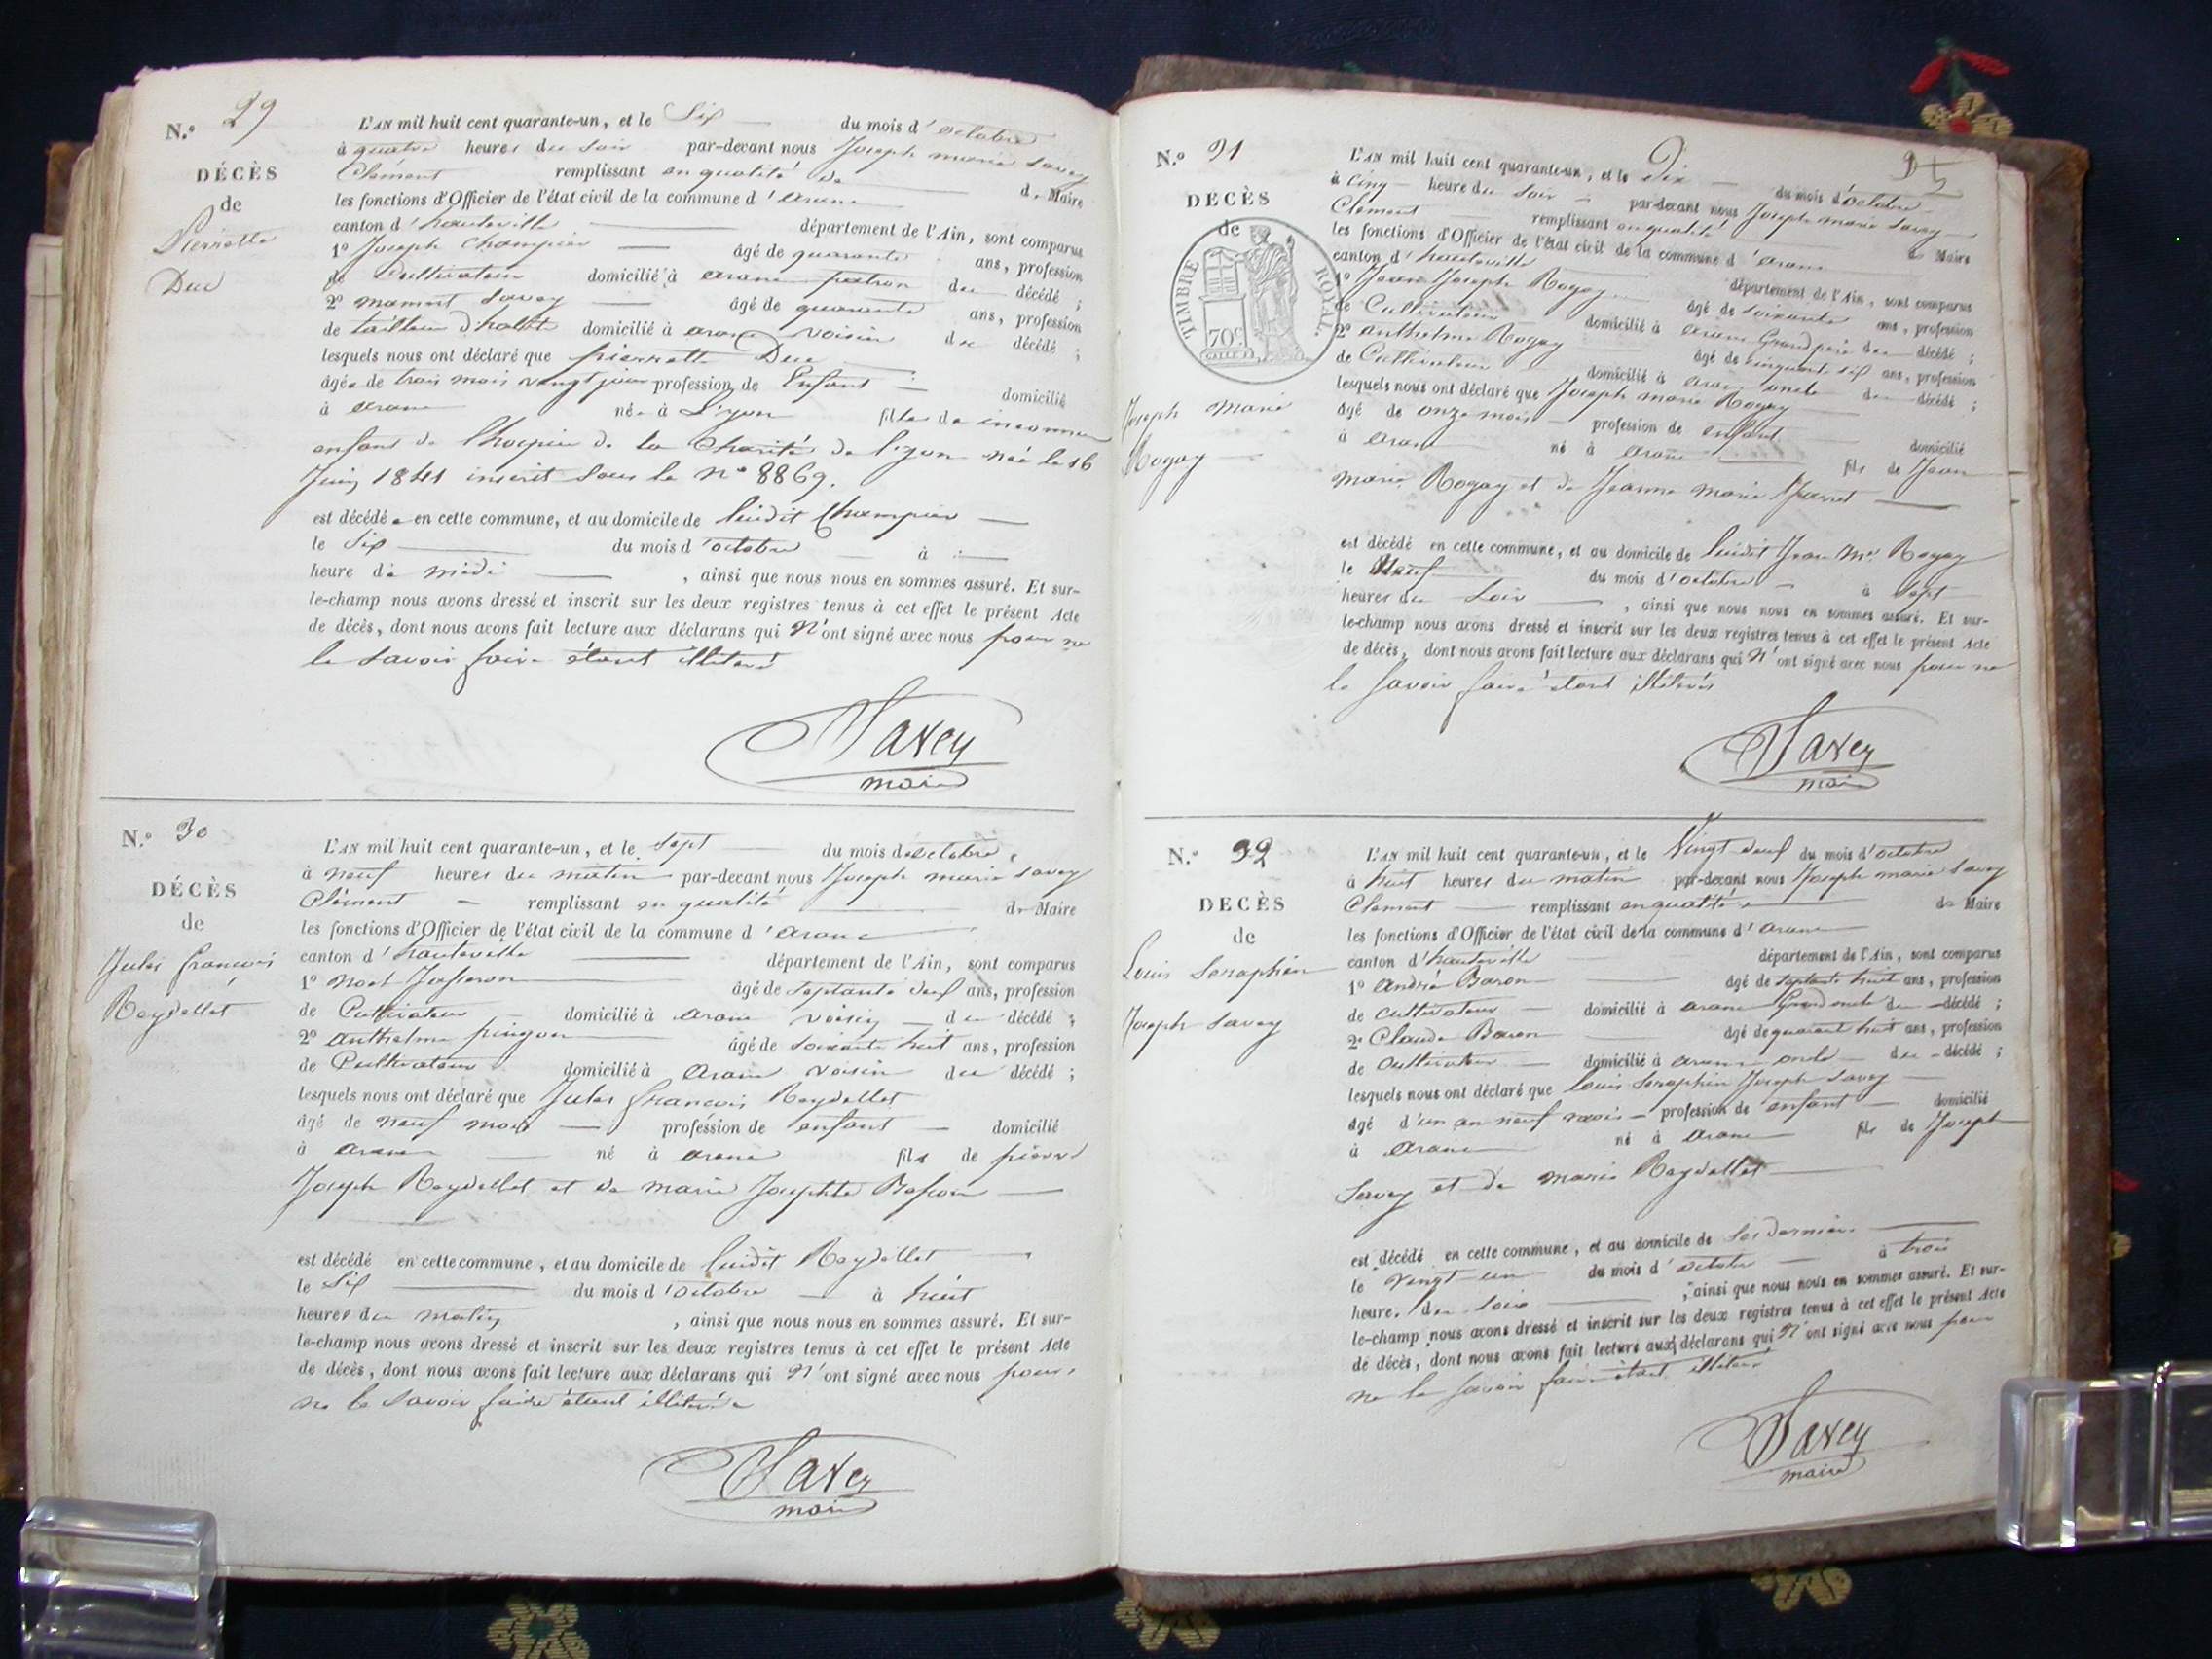 N.º 29
DÉCÈS
de
Pierrette
Duc
L'AN mil huit cent quarante-un, et le Six du mois d'octobre
à quatre heures du soir par-devant nous Joseph marie Savey
Clément remplissant en qualité de de Maire
les fonctions d'Officier de l'état civil de la commune d'arane
canton d'hauteville département de l'Ain, sont comparus
1º Joseph Champier âgé de quarante ans, profession
de Cultivateur domicilié à arane patron du décédé ;
2º mamert Savey âgé de quarante ans, profession
de tailleur d'habits domicilié à arane voisin du décédé ;
lesquels nous ont déclaré que pierrette Duc
âgée de trois mois vingt jours profession de Enfant domicilié
à arane née à Lyon fille de inconnu
enfant de l'hospice de la Charité de lyon née le 16
Juin 1841 inscrit sous le nº 8869.
est décédée en cette commune, et au domicile de ludit Champier
le Six du mois d'octobre à
heure de midi , ainsi que nous nous en sommes assuré. Et sur-
le-champ nous avons dressé et inscrit sur les deux registres tenus à cet effet le présent Acte
de décès, dont nous avons fait lecture aux déclarans qui n'ont signé avec nous pour ne
le savoir faire étant illiteré
Savey
maire
N.º 30
DÉCÈS
de
Jules françois
Reydellet
L'AN mil huit cent quarante-un, et le Sept du mois d'octobre
à neuf heures du matin par-devant nous Joseph marie Savey
Clément remplissant en qualité de Maire
les fonctions d'Officier de l'état civil de la commune d'arane
canton d'hauteville département de l'Ain, sont comparus
1º âgé de septante neuf ans, profession
de Cultivateur domicilié à arane voisin du décédé ;
2º anthelme pingon âgé de soixante huit ans, profession
de Cultivateur domicilié à arane voisin du décédé ;
lesquels nous ont déclaré que Jules françois Reydellet
âgé de neuf mois profession de enfant domicilié
à arane né à arane fils de pierre
Joseph Reydellet et de marie Josephte
est décédé en cette commune, et au domicile de ludit Reydellet
le Six du mois d'octobre à huit
heures du matin , ainsi que nous nous en sommes assuré. Et sur-
le-champ nous avons dressé et inscrit sur les deux registres tenus à cet effet le présent Acte
de décès, dont nous avons fait lecture aux déclarans qui n'ont signé avec nous pour
ne le savoir faire étant illiteré
Savey
maire
N.º 31
DÉCÈS
de
TIMBRE ROYAL.
70c
Joseph Marie
Rogay
L'AN mil huit cent quarante-un, et le Dix du mois d'octobre
à Cinq heure du soir par-devant nous Joseph marie Savey
Clément remplissant en qualité de Maire
les fonctions d'Officier de l'état civil de la commune d'arane
canton d'hauteville département de l'Ain, sont comparus
1º Jean Joseph Rogay âgé de soixante ans, profession
de Cultivateur domicilié à arane Grand père du décédé ;
2º anthelme Rogay âgé de cinquante six ans, profession
de Cultivateur domicilié à arane oncle du décédé ;
lesquels nous ont déclaré que Joseph marie Rogay
âgé de onze mois profession de enfant domicilié
à arane né à arane fils de Jean
marie Rogay et de Jeanne marie
est décédé en cette commune, et au domicile de ludit Jean Me Rogay
le Neuf du mois d'octobre à sept
heures du soir , ainsi que nous nous en sommes assuré. Et sur-
le-champ nous avons dressé et inscrit sur les deux registres tenus à cet effet le présent Acte
de décès, dont nous avons fait lecture aux déclarans qui n'ont signé avec nous pour ne
le savoir faire étant illiterés
Savey
maire
N.º 32
DÉCÈS
de
Louis Seraphin
Joseph Savey
L'AN mil huit cent quarante-un, et le Vingt deux du mois d'octobre
à huit heures du matin par-devant nous Joseph marie Savey
Clément remplissant en qualité de Maire
les fonctions d'Officier de l'état civil de la commune d'arane
canton d'hauteville département de l'Ain, sont comparus
1º André Baron âgé de septante huit ans, profession
de cultivateur domicilié à arane Grand oncle du décédé ;
2º Claude Baron âgé de quarant huit ans, profession
de cultivateur domicilié à arane oncle du décédé ;
lesquels nous ont déclaré que Louis Seraphin Joseph Savey
âgé d'un an neuf mois profession de enfant domicilié
à arane né à arane fils de Joseph
Savey et de marie Reydellet
est décédé en cette commune, et au domicile de ses derniers
le vingt un du mois d'octobre à trois
heure, du soir , ainsi que nous nous en sommes assuré. Et sur-
le-champ nous avons dressé et inscrit sur les deux registres tenus à cet effet le présent Acte
de décès, dont nous avons fait lecture aux déclarans qui n'ont signé avec nous pour
ne le savoir faire étant illiteré
Savey
maire